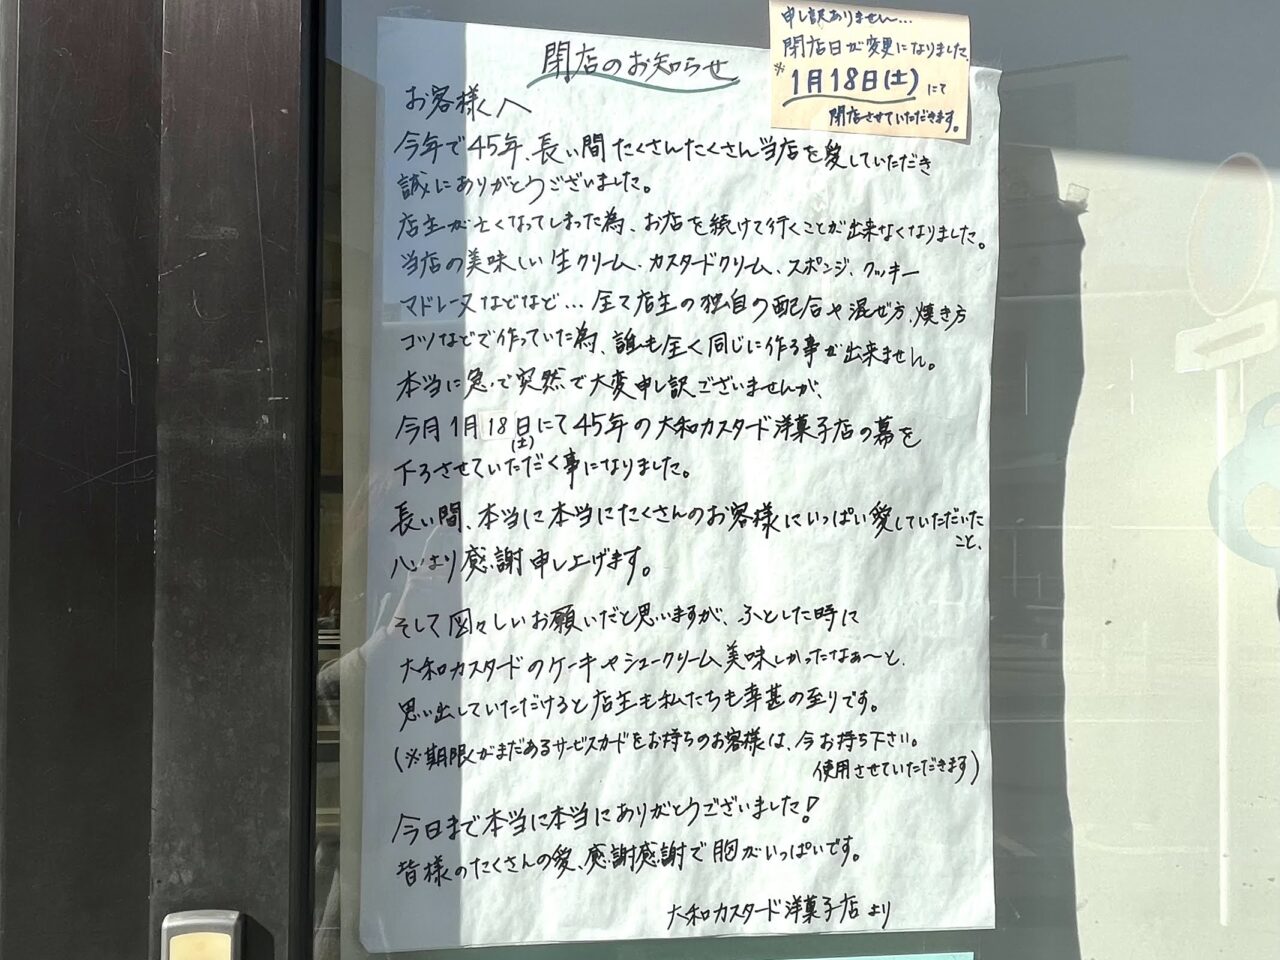 申し訳ありません…
閉店日が変更になりました。
※1月18日(土)にて
閉店させていただきます。
閉店のお知らせ
お客様へ
今年で45年、長い間たくさんたくさん当店を愛していただき
誠にありがとうございました。
店主が亡くなってしまった為、お店を続けて行くことが出来なくなりました。
当店の美味しい生クリーム、カスタードクリーム、スポンジ、クッキー
マドレーヌなどなど…全て店主の独自の配合や混ぜ方、焼き方
コツなどで作っていた為、誰も全く同じに作る事が出来ません。
本当に急で突然で大変申し訳ございませんが、
今月1月18日にて45年の大和カスタード洋菓子店の幕を
(土)
下ろさせていただく事になりました。
長い間、本当に本当にたくさんのお客様にいっぱい愛していただいた
こと、
心より感謝申し上げます。
そして図々しいお願いだと思いますが、ふとした時に
大和カスタードのケーキやシュークリーム美味しかったなぁ〜と、
思い出していただけると店主も私たちも幸甚の至りです。
(※期限がまだあるサービスカードをお持ちのお客様は、今お持ち下さい。
使用させていただきます)
今日まで本当に本当にありがとうございました!
皆様のたくさんの愛、感謝感謝で胸がいっぱいです。
大和カスタード洋菓子店より